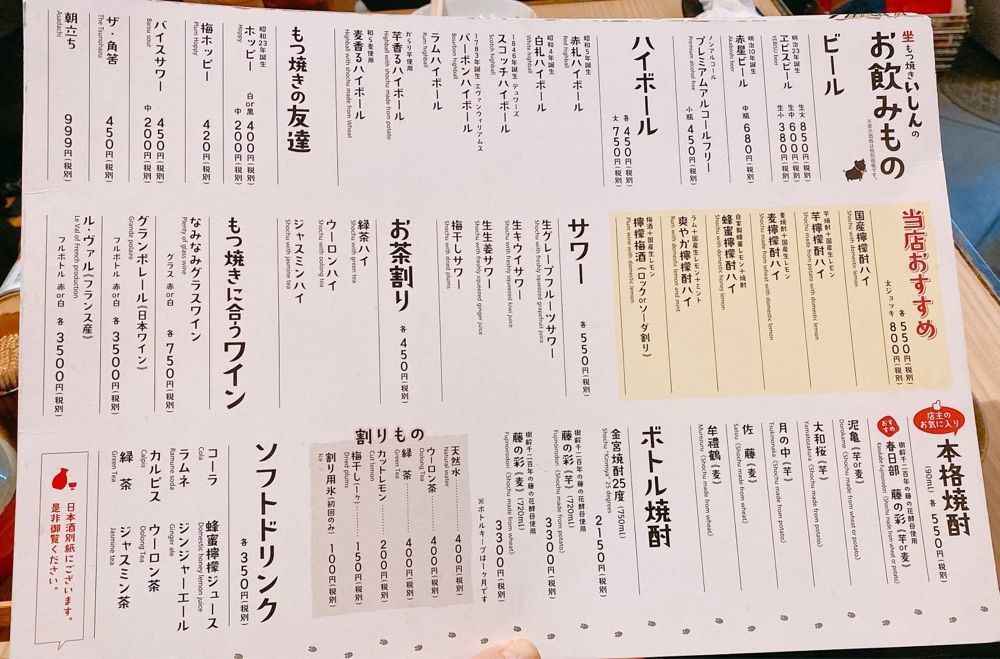 坐もつ焼きいしんの
お飲みもの
※表示価格は税別価格です。
ビール
明治23年誕生
ヱビスビール
YEBISU beer
生大 850円(税別)
生中 600円(税別)
生小 380円(税別)
明治10年誕生
赤星ビール
Akaboshi beer
中瓶 680円(税別)
ノンアルコール
プレミアムアルコールフリー
Premium alcohol free
小瓶 450円(税別)
ハイボール
各 450円(税別)
大 750円(税別)
昭和5年誕生
赤札ハイボール
Red highball
昭和4年誕生
白札ハイボール
White highball
1846年誕生 デュワーズ
スコッチハイボール
Scotch highball
1783年誕生 エヴァンウィリアムス
バーボンハイボール
Bourbon highball
ラムハイボール
Rum highball
芋香るハイボール
Highball with shochu made from potato
和ら麦使用
麦香るハイボール
Highball with shochu made from Wheat
もつ焼きの友達
昭和23年誕生
ホッピー
Hoppy
白or黒 400円(税別)
中 200円(税別)
梅ホッピー
Plum Hoppy
420円(税別)
バイスサワー
Baisu sour
450円(税別)
中 200円(税別)
ザ・角筈
The Tsunohazu
450円(税別)
朝立ち
Asadachi
999円(税別)
当店おすすめ
各 550円(税別)
大ジョッキ 800円(税別)
国産檸檬酎ハイ
Shochu with domestic lemon
芋焼酎+国産生レモン
芋檸檬酎ハイ
Shochu made from potato with domestic lemon
麦焼酎+国産生レモン
麦檸檬酎ハイ
Shochu made from wheat with domestic lemon
自家製蜂蜜レモン+焼酎
蜂蜜檸檬酎ハイ
Shochu with domestic honey lemon
ラム+国産生レモン+ミント
爽やか檸檬酎ハイ
Rum with domestic lemon and mint
梅酒+国産生レモン
檸檬梅酒(ロックorソーダ割り)
Plum wine with domestic lemon
サワー
各 550円(税別)
生グレープフルーツサワー
Shochu with freshly squeezed grapefruit juice
生キウイサワー
Shochu with freshly squeezed kiwi juice
生生姜サワー
Shochu with freshly squeezed ginger juice
梅干しサワー
Shochu with dried plums
お茶割り
各 450円(税別)
緑茶ハイ
Shochu with green tea
ウーロンハイ
Shochu with oolong tea
ジャスミンハイ
Shochu with jasmine tea
もつ焼きに合うワイン
なみなみグラスワイン
Plenty of glass wine
グラス 赤or白 各 750円(税別)
グランポレール(日本ワイン)
Grande polaire
フルボトル 赤or白 各 3500円(税別)
ル・ヴァル(フランス産)
Le Val of French production
フルボトル 赤or白 各 3500円(税別)
店主のお気に入り
本格焼酎
(90mL) 各 550円(税別)
おすすめ
樹齢千二百年の藤の花酵母使用
春日部 藤の彩(芋or麦)
Kasukabe Fujinoirodori (Shochu made from wheat or potato)
泥亀(芋or麦)
Dorokame (Shochu made from wheat or potato)
大和桜(芋)
Yamatozakura (Shochu made from potato)
月の中(芋)
Tsukinonaka (Shochu made from potato)
佐藤(麦)
Satou (Shochu made from wheat)
牟禮鶴(麦)
Muretsuru (Shochu made from wheat)
ボトル焼酎
金宮焼酎25度(750mL)
Shochu "Kinmiya" 25 degrees
2150円(税別)
樹齢千二百年の藤の花酵母使用
藤の彩(芋)(720mL)
Fujinoirodori (Shochu made from potato)
3300円(税別)
樹齢千二百年の藤の花酵母使用
藤の彩(麦)(720mL)
Fujinoirodori (Shochu made from wheat)
3300円(税別)
※ボトルキープは1ヶ月です
割りもの
天然水 400円(税別)
Natural water
ウーロン茶 400円(税別)
Oolong Tea
緑茶 400円(税別)
Green Tea
カットレモン 200円(税別)
Cut lemon
梅干し(一ケ) 150円(税別)
Dried plums
割り用氷(初回のみ) 100円(税別)
Ice
ソフトドリンク
各 350円(税別)
コーラ
Cola
ラムネ
Ramune soda
カルピス
Calpis
緑茶
Green Tea
蜂蜜檸檬ジュース
Domestic honey lemon juice
ジンジャーエール
Ginger ale
ウーロン茶
Oolong Tea
ジャスミン茶
Jasmine tea
日本酒別紙にございます。
是非御覧ください。